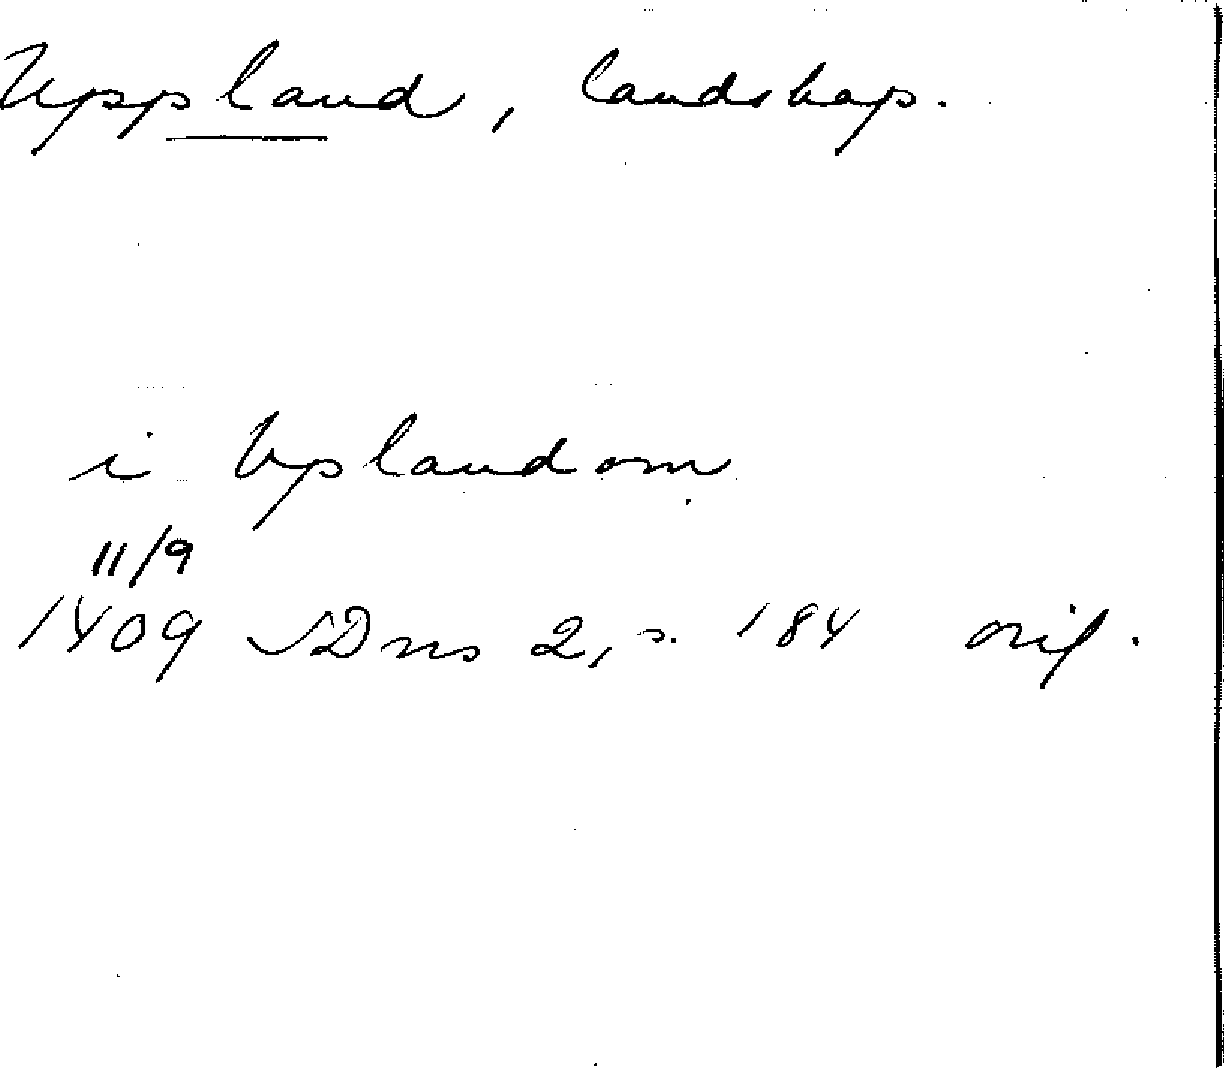 Uppland, landskap.
i Vplandom
11/9
1409 SDns 2, s. 184 orig.